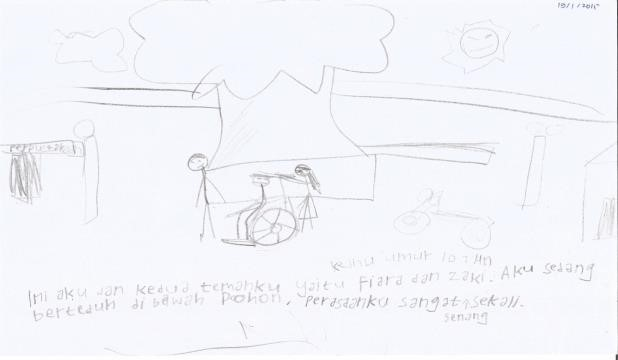 19/1/2015
umur 10 THn
Ini aku dan kedua temanku yaitu Fiara dan Zaki. Aku sedang
berteduh di bawah pohon, perasaanku sangat sekali.
senang